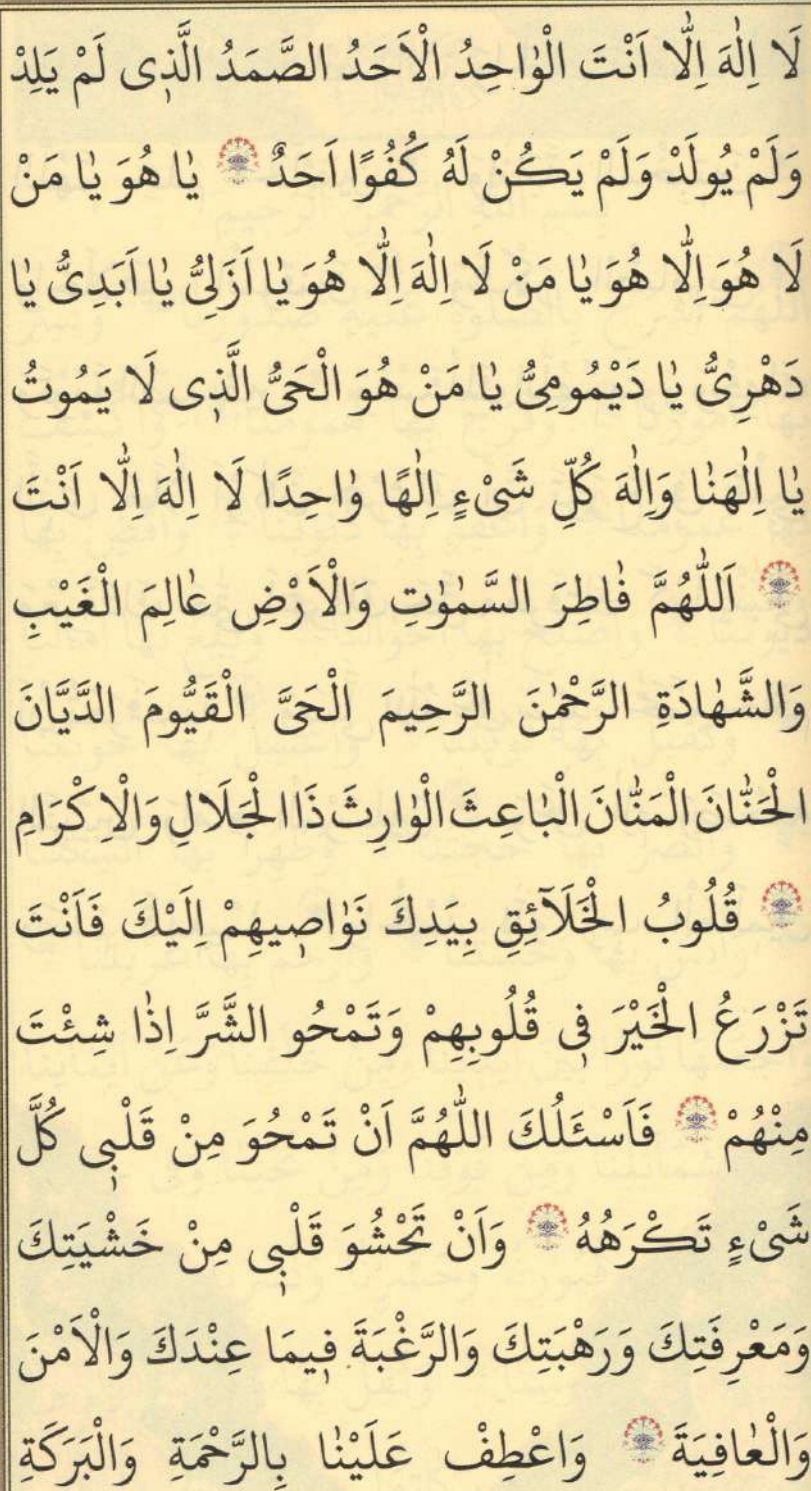 لَا اِلٰهَ اِلَّا اَنْتَ الْوٰاحِدُ الْاَحَدُ الصَّمَدُ الَّذٖى لَمْ يَلِدْ
وَلَمْ يُولَدْ وَلَمْ يَكُنْ لَهُ كُفُوًا اَحَدٌ يٰا هُوَ يٰا مَنْ
لَا هُوَ اِلَّا هُوَ يٰا مَنْ لَا اِلٰهَ اِلَّا هُوَ يٰا اَزَلِىُّ يٰا اَبَدِىُّ يٰا
دَهْرِىُّ يٰا دَيْمُومِىُّ يٰا مَنْ هُوَ الْحَىُّ الَّذٖى لَا يَمُوتُ
يٰا اِلٰهَنٰا وَاِلٰهَ كُلِّ شَىْءٍ اِلٰهًا وٰاحِدًا لَا اِلٰهَ اِلَّا اَنْتَ
اَللّٰهُمَّ فٰاطِرَ السَّمٰوٰتِ وَالْاَرْضِ عٰالِمَ الْغَيْبِ
وَالشَّهٰادَةِ الرَّحْمٰنَ الرَّحِيمَ الْحَىَّ الْقَيُّومَ الدَّيَّانَ
الْحَنّٰانَ الْمَنّٰانَ الْبٰاعِثَ الْوٰارِثَ ذَا الْجَلَالِ وَالْاِكْرَامِ
قُلُوبُ الْخَلَٓائِقِ بِيَدِكَ نَوٰاصٖيهِمْ اِلَيْكَ فَاَنْتَ
تَزْرَعُ الْخَيْرَ فٖى قُلُوبِهِمْ وَتَمْحُو الشَّرَّ اِذٰا شِئْتَ
مِنْهُمْ فَاَسْئَلُكَ اللّٰهُمَّ اَنْ تَمْحُوَ مِنْ قَلْبٖى كُلَّ
شَىْءٍ تَكْرَهُهُ وَاَنْ تَحْشُوَ قَلْبٖى مِنْ خَشْيَتِكَ
وَمَعْرِفَتِكَ وَرَهْبَتِكَ وَالرَّغْبَةَ فٖيمَا عِنْدَكَ وَالْاَمْنَ
وَالْعٰافِيَةَ وَاعْطِفْ عَلَيْنٰا بِالرَّحْمَةِ وَالْبَرَكَةِ